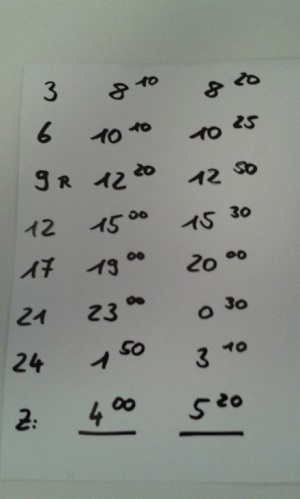 3 8¹⁰ 8²⁰
6 10¹⁰ 10²⁵
9 R 12²⁰ 12⁵⁰
12 15⁰⁰ 15³⁰
17 19⁰⁰ 20⁰⁰
21 23⁰⁰ 0³⁰
24 1⁵⁰ 3¹⁰
Z: 4⁰⁰ 5²⁰